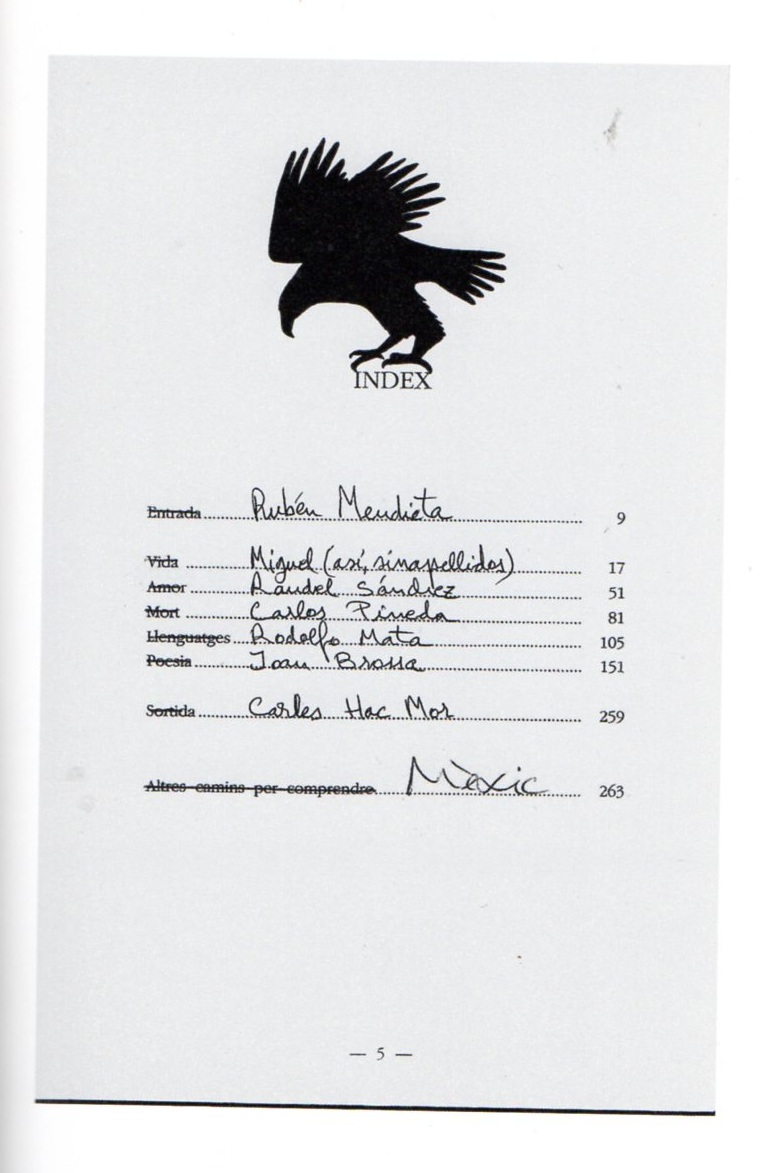 INDEX
Entrada Rubén Mendieta 9
Vida Miguel (así, sin apellidos) 17
Amor Randel Sánchez 51
Mort Carlos Pineda 81
Llenguatges Rodolfo Mata 105
Poesia Joan Brossa 151
Sortida Carles Hac Mor 259
Altres camins per comprendre Mèxic 263
— 5 —